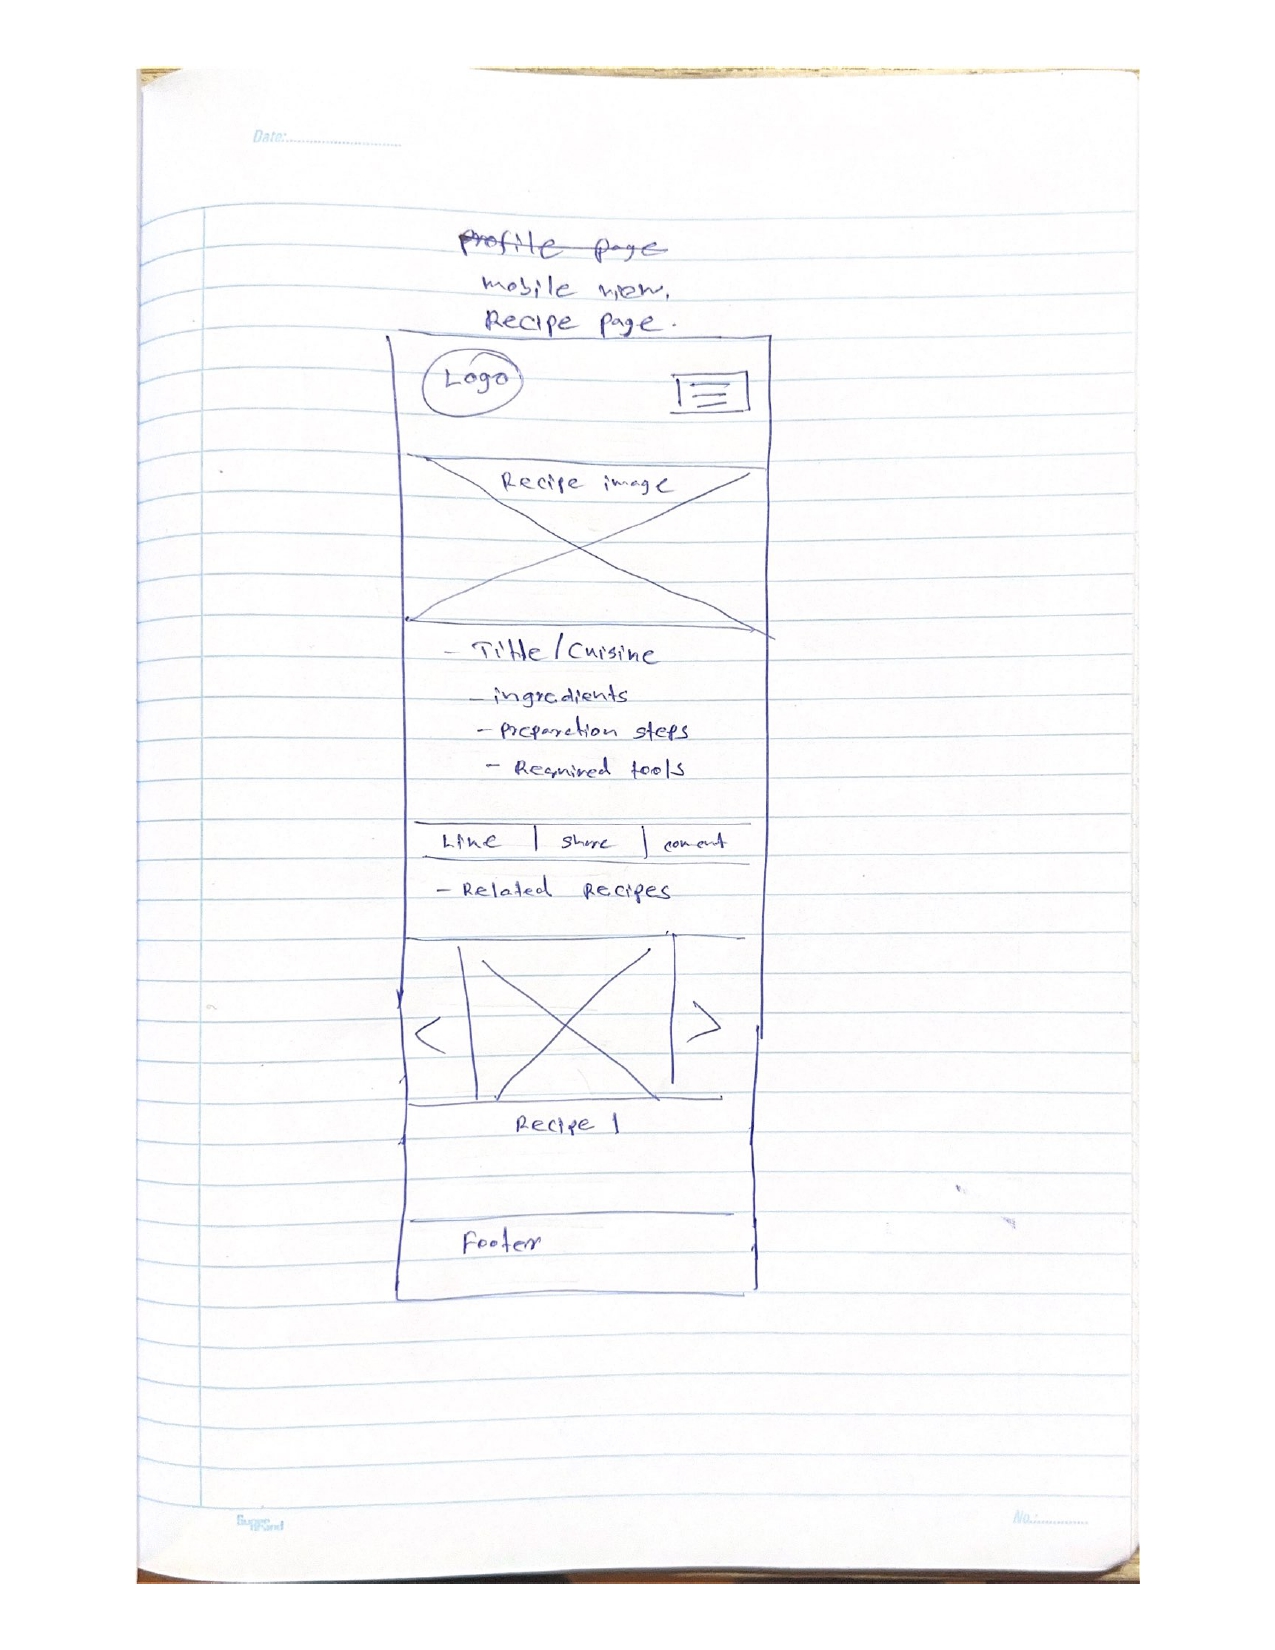 Date:
profile page
mobile view.
Recipe page.
Logo
Recipe image
- Title/Cuisine
- ingredients
- preparation steps
- Required tools
Like | share | coment
- Related Recipes
< >
Recipe 1
Footer
No.: